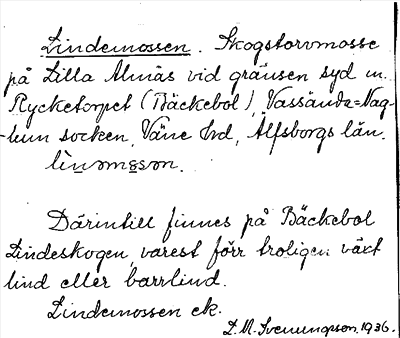 Lindemossen. Skogstorvmosse
på Lilla Almäs vid gränsen syd m.
Rycketorpet (Bäckebol), Vassända=Nag-
lum socken, Väne hrd, Älfsborgs län.
Därintill finnes på Bäckebol
Lindeskogen, varest förr troligen växt
lind eller barrlind.
Lindemossen ek.
L. M. Svenungsson. 1936.